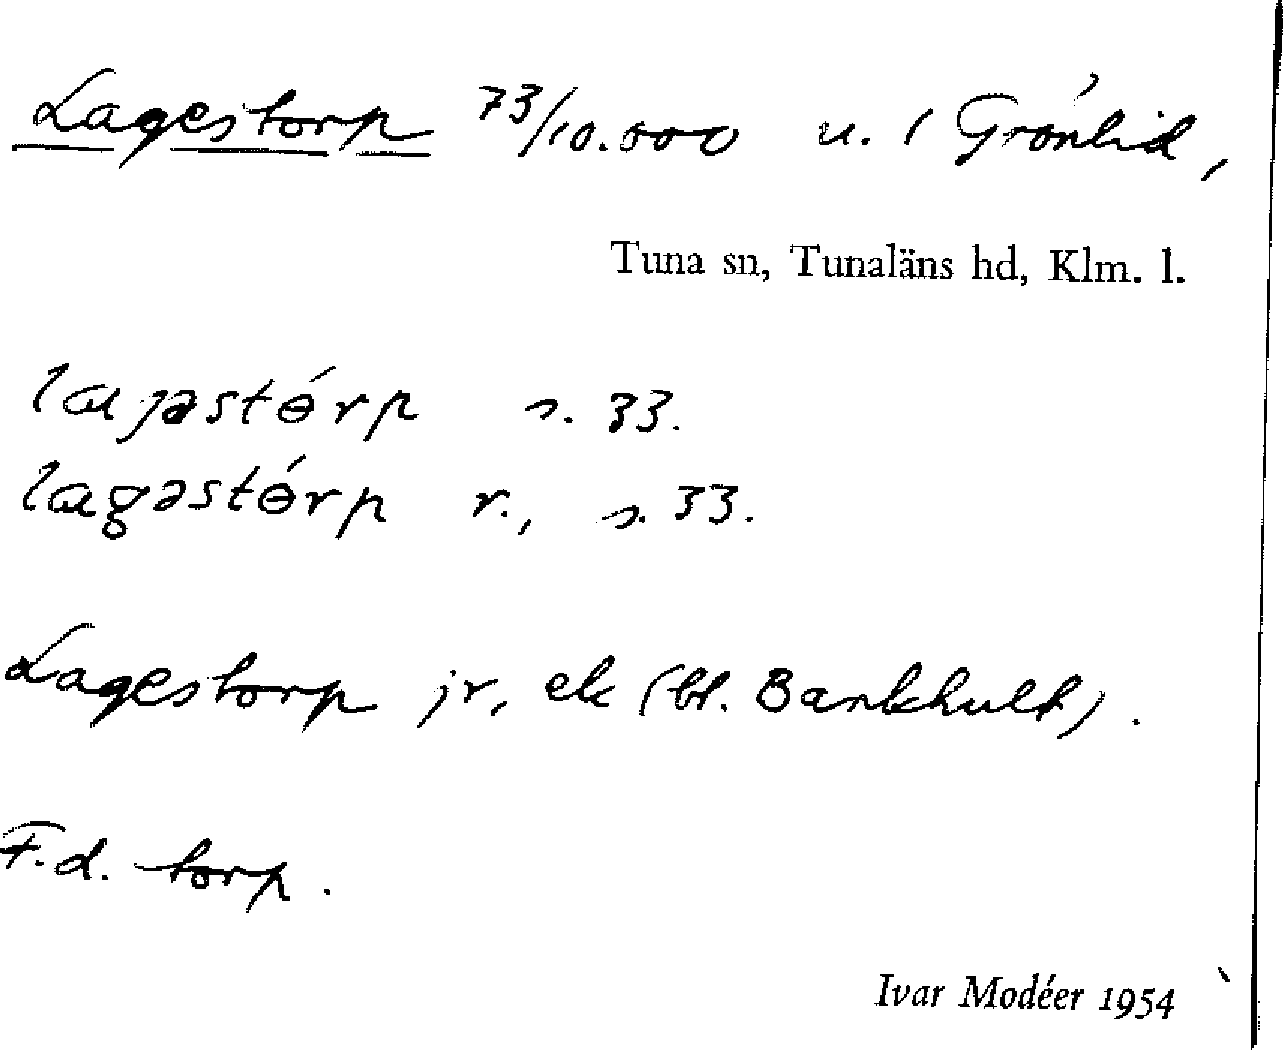 Lagestorp 73/10.000 u. 1 Grönlid,
Tuna sn, Tunaläns hd, Klm. l.
lajəstɵ́rp s. 33.
lagəstɵ́rp r., s. 33.
Lagestorp jr, ek (bl. Bankhult).
F.d. torp.
Ivar Modéer 1954